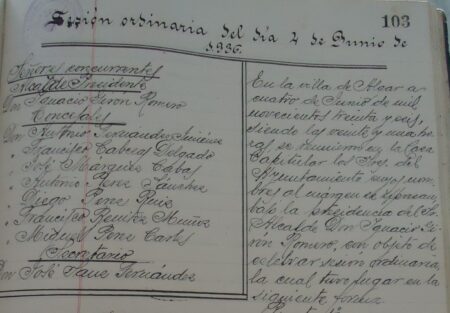 103
Sesión ordinaria del día 4 de Junio de
1936.
Señores concurrentes
Alcalde Presidente
Don Ignacio Romero
Concejales
Don Antonio Fernández Jiménez
" Francisco Cabezas Delgado
" José Márquez Cobos
" Antonio Pérez Sánchez
" Diego Pérez Ruiz
" Francisco Benítez Muñoz
" Miguel Pérez Cortés
Secretario
Don José Fernández
En la villa de a
cuatro de Junio de mil
novecientos treinta y seis,
siendo las veinte y una ho-
ras, se reunieron en la Casa
Capitular los Sres. del
Ayuntamiento cuyos nom-
bres al margen se expresan
bajo la presidencia del Sr.
Alcalde Don Ignacio
Romero, con objeto de
celebrar sesión ordinaria,
la cual tuvo lugar en la
siguiente forma